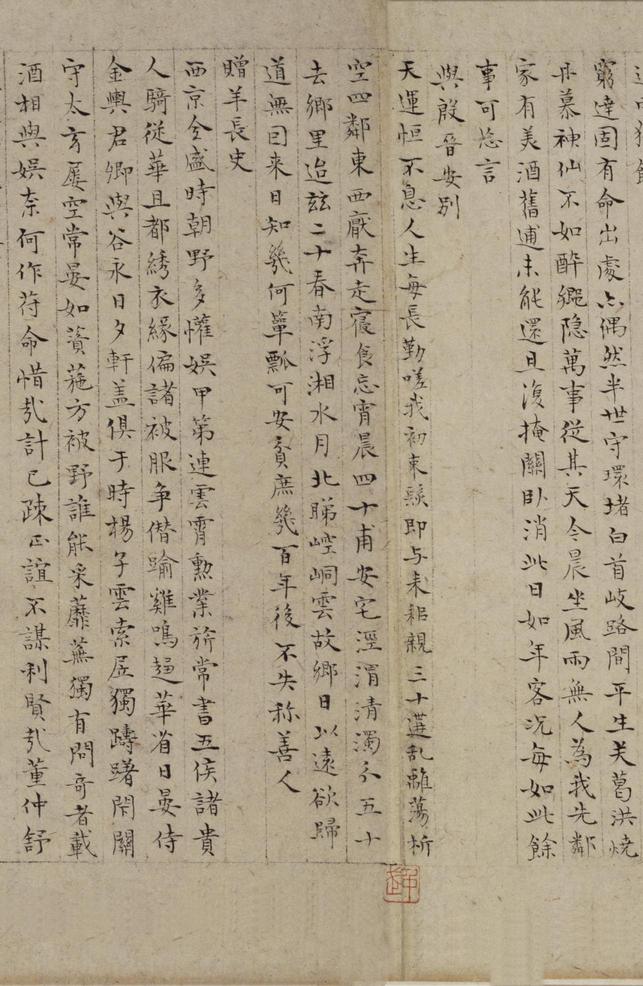 窮達固有命出處亦偶然半世守環堵白首歧路間平生笑葛洪燒
丹慕神仙不如醉鄉隱萬事從其天今晨坐風雨無人為我先鄰
家有美酒舊逋未能還且復掩關臥消此日如年客況每如此餘
事可忽言
與殷晉安別
天運恒不息人生每長勤嗟我初束髮即与耒耜親三十遘乱離蕩析
空四鄰東西厭奔走寢食忘宵晨四十甫安宅涇渭清濁分五十
去鄉里迨茲二十春南浮湘水月北睇崆峒雲故鄉日以遠欲歸
道無因来日知幾何簞瓢可安貧庶幾百年後不失称善人
贈羊長史
西京全盛時朝野多懽娛甲第連雲霄勳業旂常書五侯諸貴
人騎従華且都綉衣緣偏諸被服争僭踰雞鳴趍華省日晏侍
金輿君卿與谷永日夕軒盖俱于時楊子雲索居獨躊躇閇關
守太玄屢空常晏如薋葹方被野誰能采蘼蕪獨有問奇者載
酒相與娛奈何作苻命惜哉計已疎正誼不謀利賢哉董仲舒